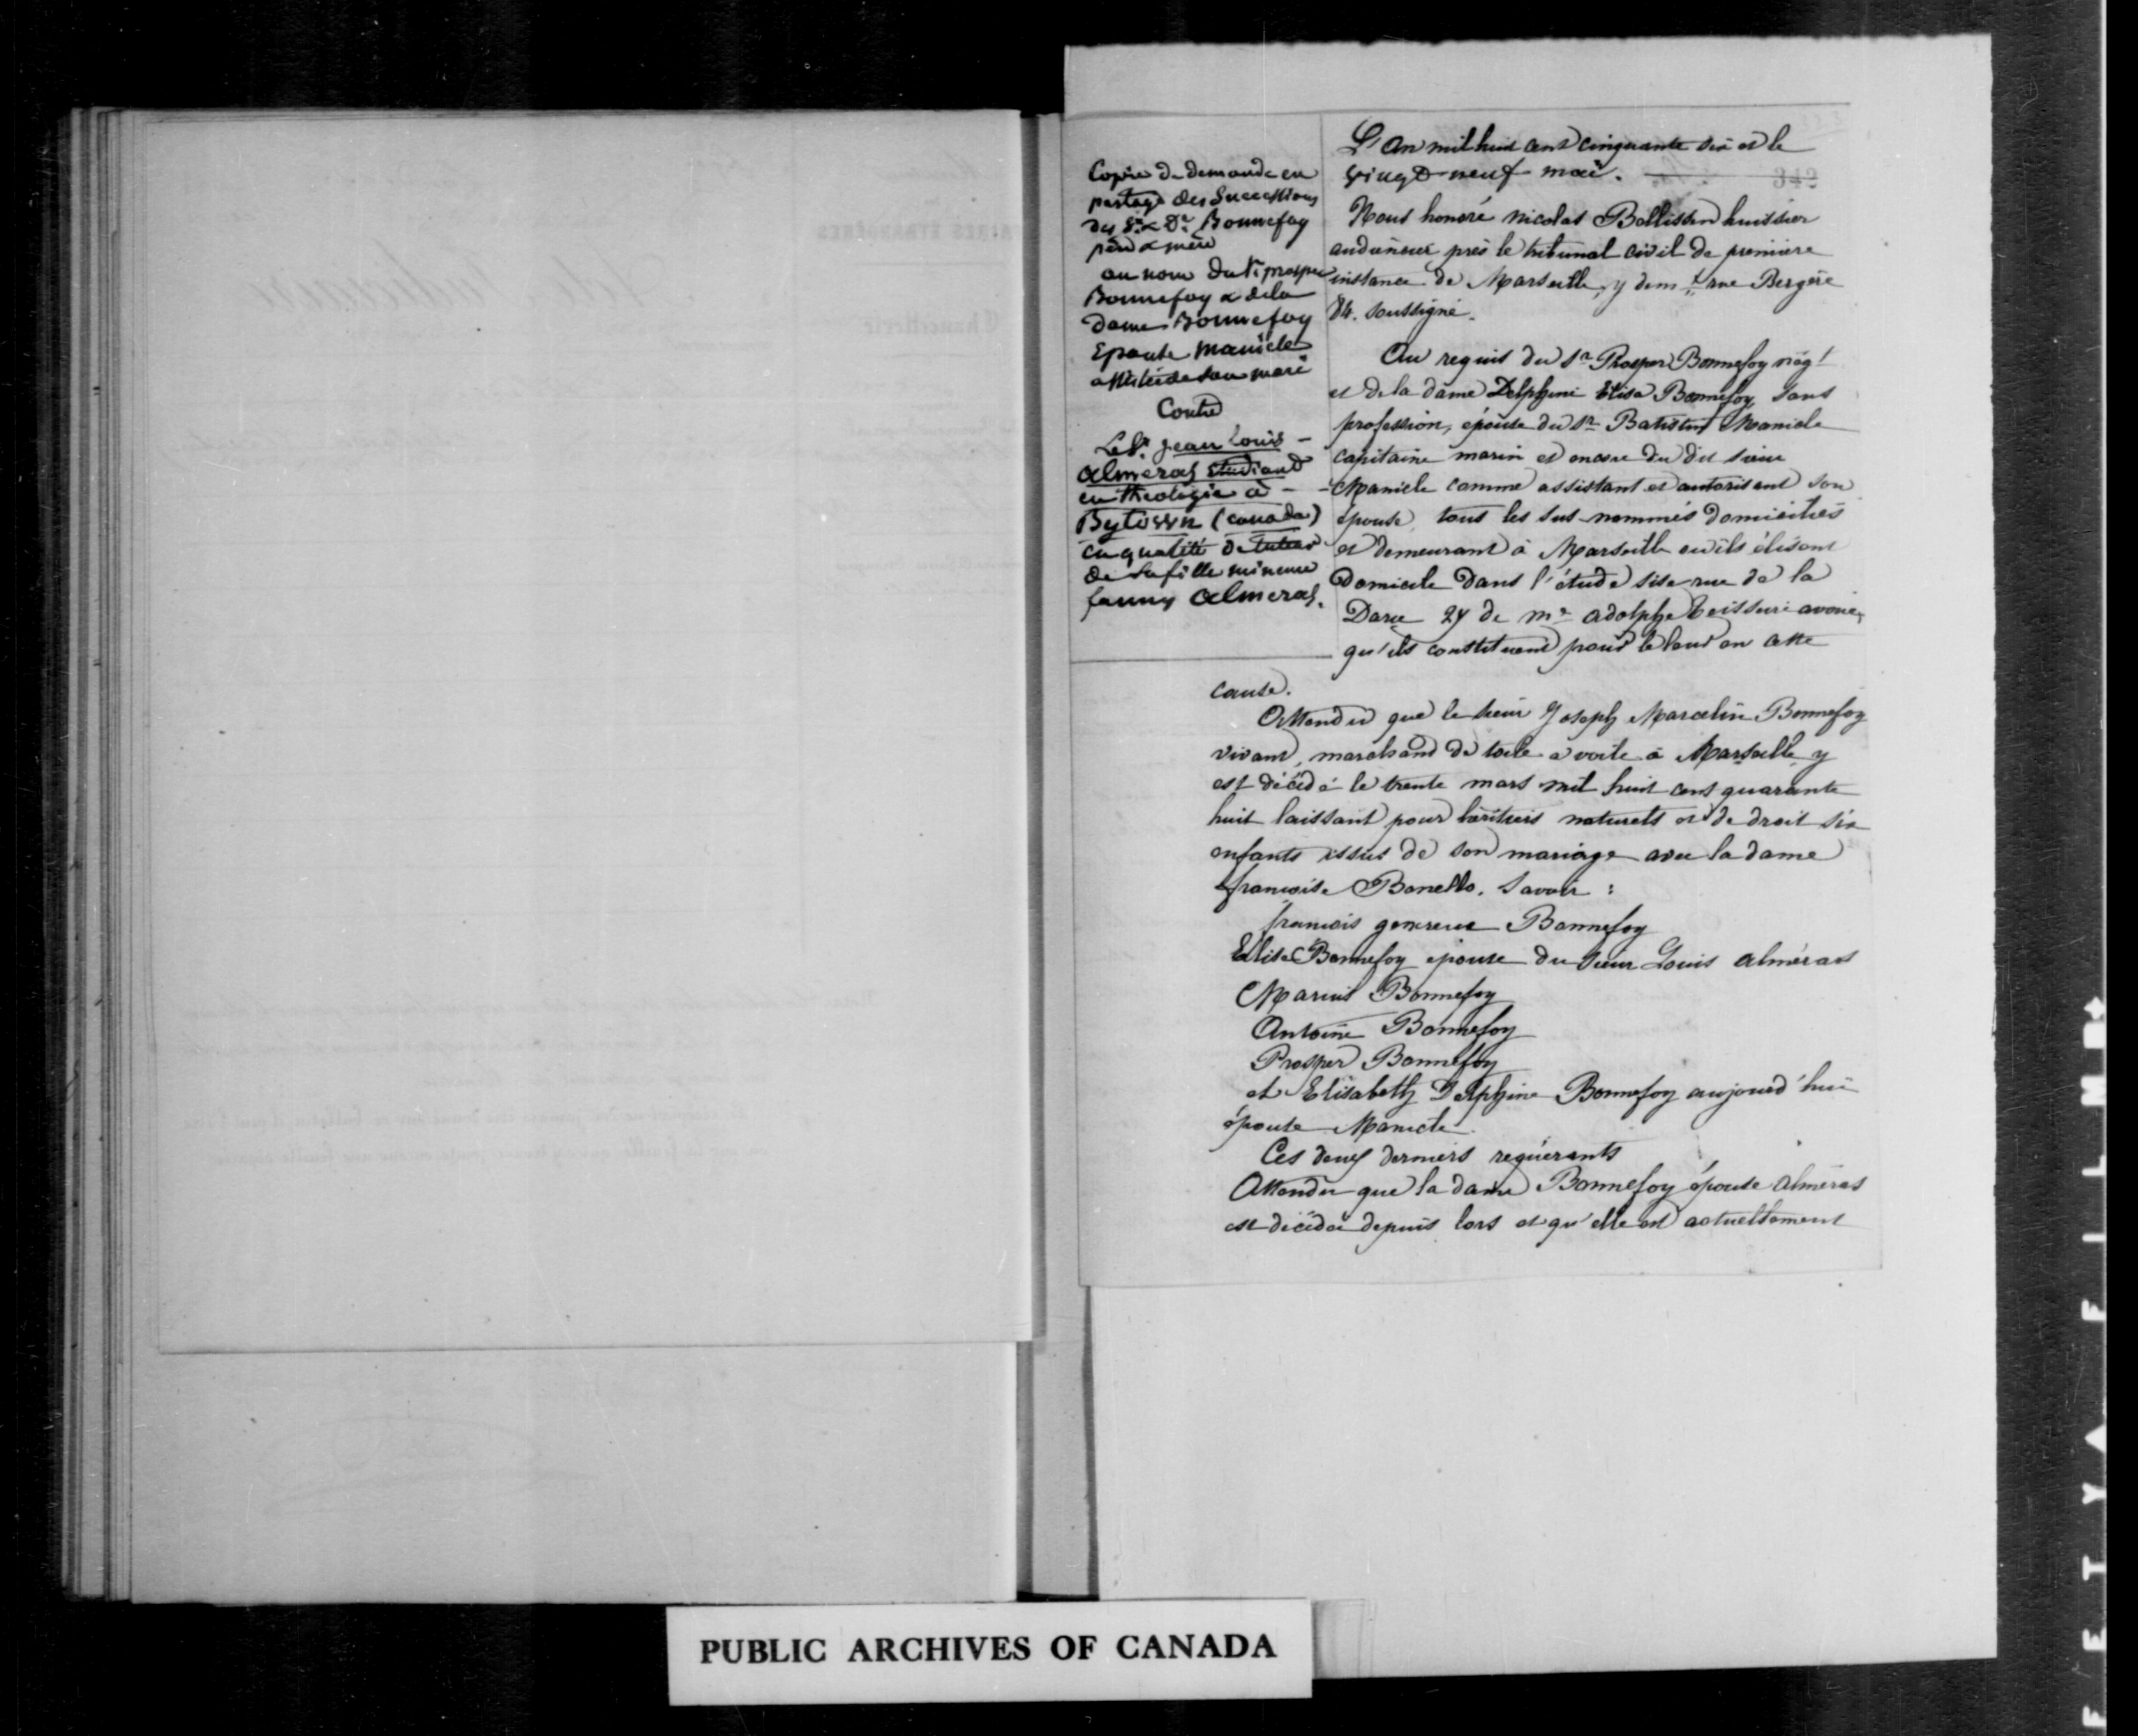 Copie de demande en
partage des Successions
des Sr & De Bonnefoy
père & mère
au nom du Sr prosper
Bonnefoy & de la
dame Bonnefoy
Epouse Manicle
assistée de son mari
Contre
Le Sr Jean Louis
Almeras étudiant
en théologie à
Bytown (Canada)
en qualité de tuteur
de sa fille mineure
fanny Almeras.
L'an mil huit cent cinquante six et le
vingt-neuf mai.
342
Nous honoré nicolas Bellissin huissier
audiencier près le tribunal civil de première
instance de Marseille, y demt rue Bergère
84. soussigné.
Au requis du sr Prosper Bonnefoy nég't
et de la dame Delphine Elisa Bonnefoy, sans
profession, épouse du sr Batistin Manicle
capitaine marin et encore du dit sieur
Manicle comme assistant et autorisant son
épouse, tous les sus-nommés domiciliés
et demeurant à Marseille où ils élisent
Domicile dans l'étude sise rue de la
Darse 24 de me adolphe Teissere avoué,
qu'ils constituent pour le leur en cette
cause.
Attendu que le sieur Joseph Marcelin Bonnefoy
vivant, marchand de toile à voile à Marseille, y
est décédé le trente mars mil huit cent quarante
huit laissant pour héritiers naturels et de droit six
enfants issus de son mariage avec la dame
françoise Bonello. Savoir :
francois genereux Bonnefoy
Elise Bonnefoy épouse du sieur Louis almeras
Marius Bonnefoy
Antoine Bonnefoy
Prosper Bonnefoy
et Elisabeth Delphine Bonnefoy aujourd'hui
épouse Manicle.
Ces deux derniers requérants
Attendu que la dame Bonnefoy épouse almeras
est décédée depuis lors et qu'elle est actuellement
PUBLIC ARCHIVES OF CANADA